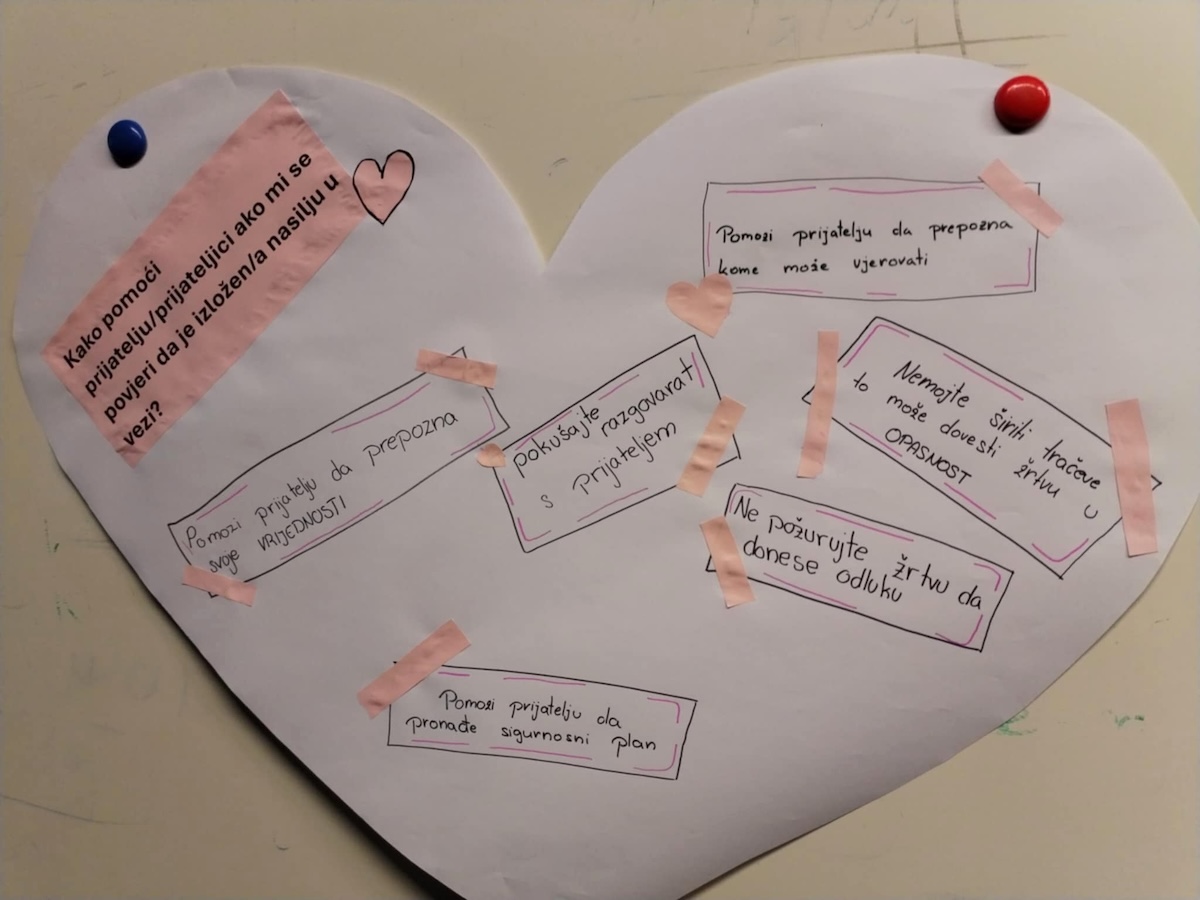 Kako pomoći
prijatelju/prijateljici ako mi se
povjeri da je izložen/a nasilju u
vezi?
Pomozi prijatelju da prepozna
kome može vjerovati
Pomozi prijatelju da prepozna
svoje VRIJEDNOSTI
pokušajte
razgovarat
s prijateljem
Nemojte širiti tračeve
to može dovesti žrtvu u
OPASNOST
Ne požurujte žrtvu da
donese odluku
Pomozi prijatelju da
pronađe sigurnosni plan